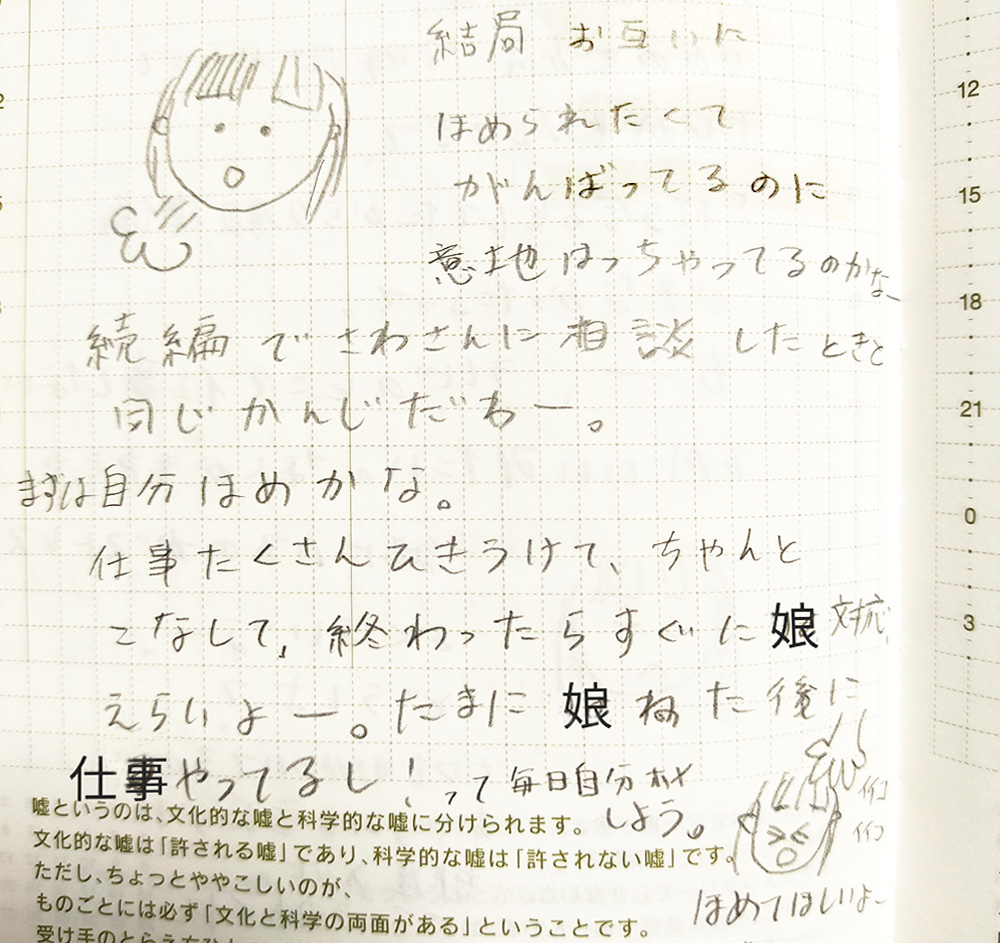 結局 お互いに
ほめられたくて
がんばってるのに
意地はっちゃってるのかなー
続編でさわさんに相談したときと
同じかんじだわー。
まずは自分ほめかな。
仕事たくさんひきうけて、ちゃんと
こなして、終わったらすぐに娘対応、
えらいよー。たまに娘ねた後に
仕事やってるし!って毎日自分ホメ
しよう。
イイコ
イイコ
ほめてほしいよー
嘘というのは、文化的な嘘と科学的な嘘に分けられます。
文化的な嘘は「許される嘘」であり、科学的な嘘は「許されない嘘」です。
ただし、ちょっとややこしいのが、
ものごとには必ず「文化と科学の両面がある」ということです。
受け手のとらえ方ひ
12
15
18
21
0
3